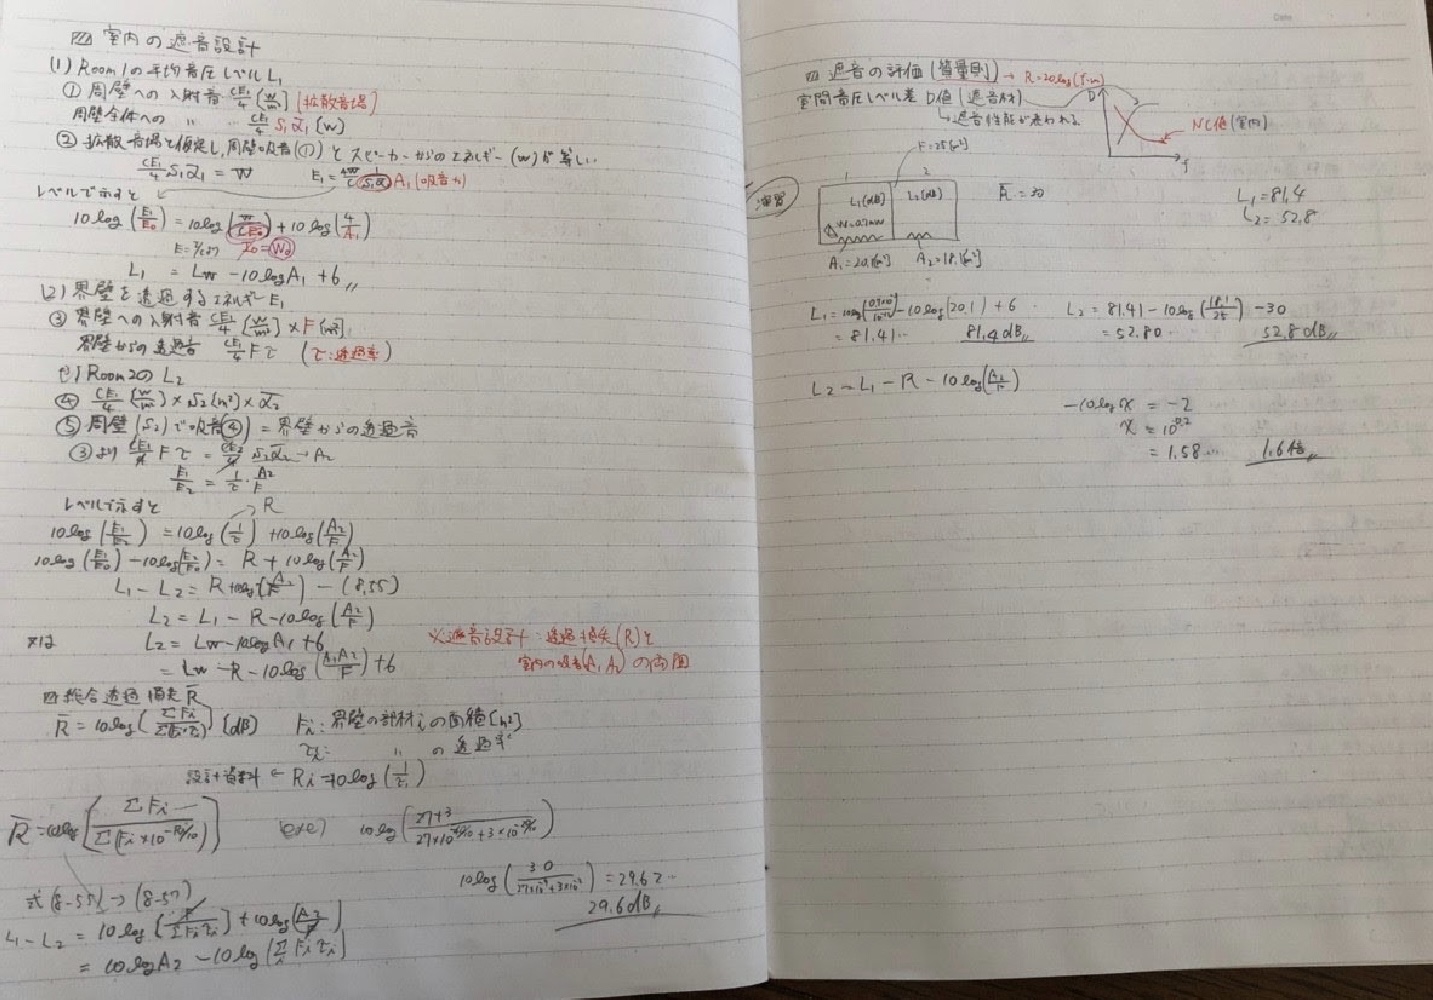 室内の遮音設計
(1) Room1の平均音圧レベル L₁
① 周壁への入射音 cE₁/4 [w/m²] [拡散音場]
周壁全体への 〃 cE₁/4 S₁ᾱ₁ [w]
② 拡散音場と仮定し、周壁吸音(①)とスピーカーからのエネルギー(w)が等しい
cE₁/4 S₁ᾱ₁ = W E₁ = 4W/c 1/S₁ᾱ₁ A₁ (吸音力)
レベルで示すと
10log(E₁/E₀) = 10log(W/cE₀) + 10log(4/A₁)
I₀ = W₀
L₁ = Lw - 10logA₁ + 6 〃
(2) 界壁を透過するエネルギー E₁
③ 界壁への入射音 cE₁/4 [w/m²] × F [m²],
界壁からの透過音 cE₁/4 Fτ (τ:透過率)
Room2の L₂
④ [w/m²] × S₂ [m²] × ᾱ₂
⑤ 周壁(S₂)で吸音④) = 界壁からの透過音
③より cE₁/4 Fτ = cE₂/4 S₂ᾱ₂ → A₂
E₁/E₂ = 1/τ · A₂/F
レベルで示すと R
10log(E₁/E₂) = 10log(1/τ) + 10log(A₂/F)
10log(E₁/E₀) - 10log(E₂/E₀) = R + 10log(A₂/F)
L₁ - L₂ = R + 10log(A₂/F) - (8.55)
L₂ = L₁ - R - 10log(A₂/F)
又は L₂ = Lw - 10logA₁ + 6
= Lw - R - 10log(A₁A₂/F) + 6
※遮音設計:透過損失(R)と
室内の吸音(A₁, A₂)の両面
総合透過損失 R̄
R̄ = 10log(ΣFi/ΣFi·τi) [dB] Fi: 界壁の部材iの面積[m²]
τi: 〃 の透過率
設計資料 ← Ri = 10log(1/τi)
R̄ = 10log(ΣFi/Σ(Fi×10^-Ri/10))
10log(30/27×10⁻⁴+3×10⁻²) = 29.62‥
29.6dB 〃
式(8-55) → (8-57)
L₁ - L₂ = 10log(F/ΣFiτi) + 10log(A₂/F)
= 10logA₂ - 10log(ΣFiτi)
遮音の評価 (質量則) → R = 20log(f·m)
室間音圧レベル差 D値 (遮音材)
遮音性能が表われる
D
NC値(室内)
f
演習
F=25[m²]
1 2
L₁[dB] L₂[dB]
R̄ = 30
A₁=20.1[m²] A₂=18.1[m²]
L₁=81.4
L₂=52.8
- 10log(20.1) + 6
= 81.41‥ 81.4dB 〃
L₂ = 81.41 - 10log(18.1/25) - 30
= 52.80‥ 52.8dB 〃
L₂ = L₁ - R - 10log(A₂/F)
-10logx = -2
x = 10^0.2
= 1.58‥‥ 1.6倍 〃